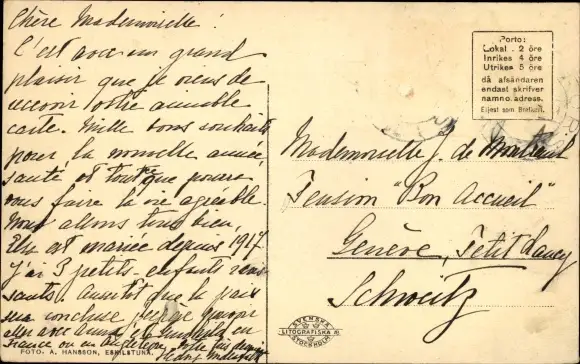 Chère Mademoiselle!
C'est avec un grand
plaisir que je viens de
recevoir votre aimable
carte. Mille bons souhaits
pour la nouvelle année,
santé et tout que pourra
vous faire la vie agréable.
Nous allons tous bien,
Elsa est mariée depuis 1917.
J'ai 3 petits-enfants
sants. Aussitôt que la paix
sera conclue j'espère pouvoir
aller avec
France ou en Angleterre.
FOTO. A. HANSSON, ESKILSTUNA.
Porto:
Lokal . 2 öre
Inrikes 4 öre
Utrikes 5 öre
då afsändaren
endast skrifver
namn o. adress.
Eljest som Brefkort.
Mademoiselle J. de
Pension "Bon Accueil"
Genève, Petit Lancy
Schweitz
SVENSKA
LITOGRAFISKA A.B.
STOCKHOLM